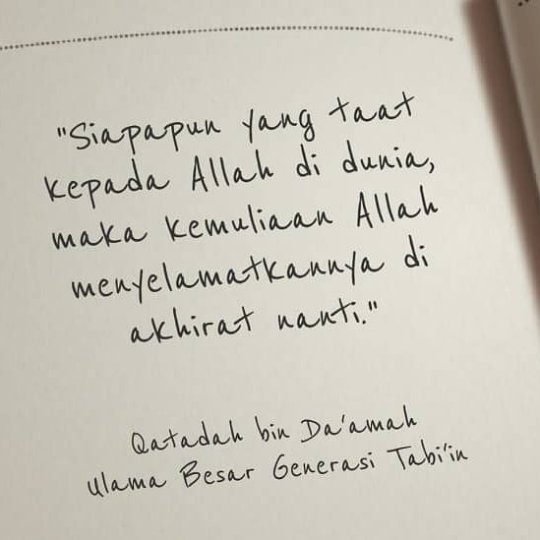 "Siapapun yang taat
kepada Allah di dunia,
maka kemuliaan Allah
menyelamatkannya di
akhirat nanti."
Qatadah bin Da'amah
Ulama Besar Generasi Tabi'in